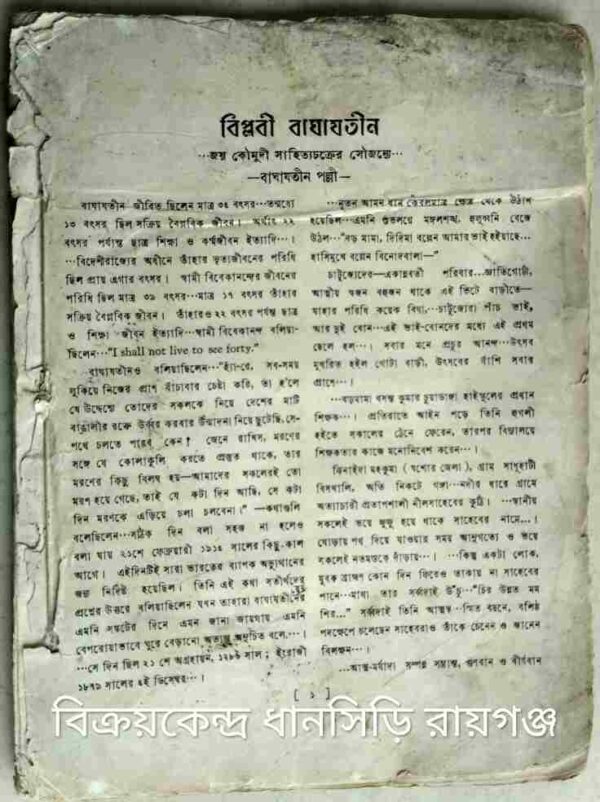 বিপ্লবী বাঘাযতীন
···জয় কৌমুদী সাহিত্যচক্রের সৌজন্যে···
—বাঘাযতীন পল্লী—
বাঘাযতীন জীবিত ছিলেন মাত্র ৩৫ বৎসর···তন্মধ্যে
১৩ বৎসর ছিল সক্রিয় বৈপ্লবিক জীবন। অর্থাৎ ২২
বৎসর পর্যন্ত ছাত্র শিক্ষা ও কর্ম্মজীবন ইত্যাদি···।
···বিদেশীরাজ্যের অধীনে তাঁহার ভৃত্যজীবনের পরিধি
ছিল প্রায় এগার বৎসর। স্বামী বিবেকানন্দের জীবনের
পরিধি ছিল মাত্র ৩৯ বৎসর···মাত্র ১৭ বৎসর তাঁহার
সক্রিয় বৈপ্লবিক জীবন। তাঁহারও ২২ বৎসর পর্যন্ত ছাত্র
ও শিক্ষা জীবন ইত্যাদি···স্বামী বিবেকানন্দ বলিয়া-
ছিলেন···"I shall not live to see forty."
বাঘাযতীনও বলিয়াছিলেন···"হ্যাঁ-রে, সব-সময়
লুকিয়ে নিজের প্রাণ বাঁচাবার চেষ্টা করি, তা হ'লে
যে উদ্দেশ্যে তোদের সকলকে নিয়ে দেশের মাটি
বাঙালীর রক্তে উর্বর করবার উন্মাদনা নিয়ে ছুটেছি, সে-
পথে চলতে পারব কেন? জেনে রাখিস, মরণের
সঙ্গে যে কোলাকুলি করতে প্রস্তুত থাকে, তার
মরণের কিছু বিলম্ব হয়—আমাদের সকলেরই তো
মরণ হয়ে গেছে, তাই যে কটা দিন আছি, সে কটা
দিন মরণকে এড়িয়ে চলা চলবেনা।" —কথাগুলি
বলেছিলেন···সঠিক দিন বলা সহজ না হলেও
বলা যায় ২১শে ফেব্রুয়ারী ১৯১৫ সালের কিছু-কাল
আগে। এইদিনটিই সারা ভারতের ব্যাপক অভ্যুত্থানের
জন্য নির্দিষ্ট হয়েছিল। তিনি এই কথা সতীর্থদের
প্রশ্নের উত্তরে বলিয়াছিলেন যখন তাহারা বাঘাযতীনের
এমনি সঙ্কটের দিনে এমন জানা জায়গায় এমনি
বেপরোয়াভাবে ঘুরে বেড়ানো অত্যন্ত অনুচিত বলে···।
···সে দিন ছিল ২১ শে অগ্রহায়ন, ১২৮৬ সাল; ইংরাজী
১৮৭৯ সালের ৭ই ডিসেম্বর···।
···নূতন আমন ধান ক্ষেত থেকে উঠান
হয়েছিল···এমনি শুভলগ্নে মঙ্গলশঙ্খ, হুলুধ্বনি বেজে
উঠল···"বড় মামা, দিদিমা বল্লেন আমার ভাই হইয়াছে···
হাসিমুখে বল্লেন বিনোদবালা—"
চাটুজ্যেদের—একান্নবর্তী পরিবার···জ্ঞাতিগোষ্ঠী,
আত্মীয় স্বজন বহুজন থাকে এই ভিটে বাড়ীতে—
যাহার পরিধি কয়েক বিঘা,···চাটুজ্যেরা পাঁচ ভাই,
আর দুই বোন···এই ভাই-বোনদের মধ্যে এই প্রথম
ছেলে হল···। সবার মনে প্রচুর আনন্দ···উৎসব
মুখরিত হইল গোটা বাড়ী, উৎসবের বাঁশি সবার
প্রাণে···।
···বড়মামা বসন্ত কুমার চুয়াডাঙ্গা হাইস্কুলের প্রধান
শিক্ষক···। প্রতিরাতে আইন পড়ে তিনি হুগলী
হইতে সকালের ট্রেনে ফেরেন, তারপর বিদ্যালয়ে
শিক্ষকতার কাজে মনোনিবেশ করেন···।
ঝিনাইদা মহকুমা (যশোর জেলা), গ্রাম সাধুহাটী
বিসখালি, অতি নিকটে গঙ্গা···নদীর ধারে গ্রামে
অত্যাচারী প্রতাপশালী নীলসাহেবের কুঠি। ···স্থানীয়
সকলেই ভয়ে জুজু হয়ে থাকে সাহেবের নামে···।
ঘোড়ায় পথ দিয়ে যাওয়ার সময় আনুগত্যে ও ভয়ে
সকলেই নতমস্তকে দাঁড়ায়···। ···কিন্তু একটা লোক,
যুবক ব্রাহ্মণ কোন দিন ফিরেও তাকায় না সাহেবের
পানে···মাথা তার সর্বদাই উঁচু···"চির উন্নত মম
শির···" সর্বদাই তিনি আত্মস্থ স্মিত বয়নে, বলিষ্ঠ
পদক্ষেপে চলেছেন সাহেবরাও তাঁকে চেনেন ও জানেন
বিলক্ষন···।
···আত্ম-মর্যাদা সম্পন্ন সম্ভ্রান্ত, গুণবান ও বীর্যবান
[ ১ ]
বিক্রয়কেন্দ্র ধানসিড়ি রায়গঞ্জ